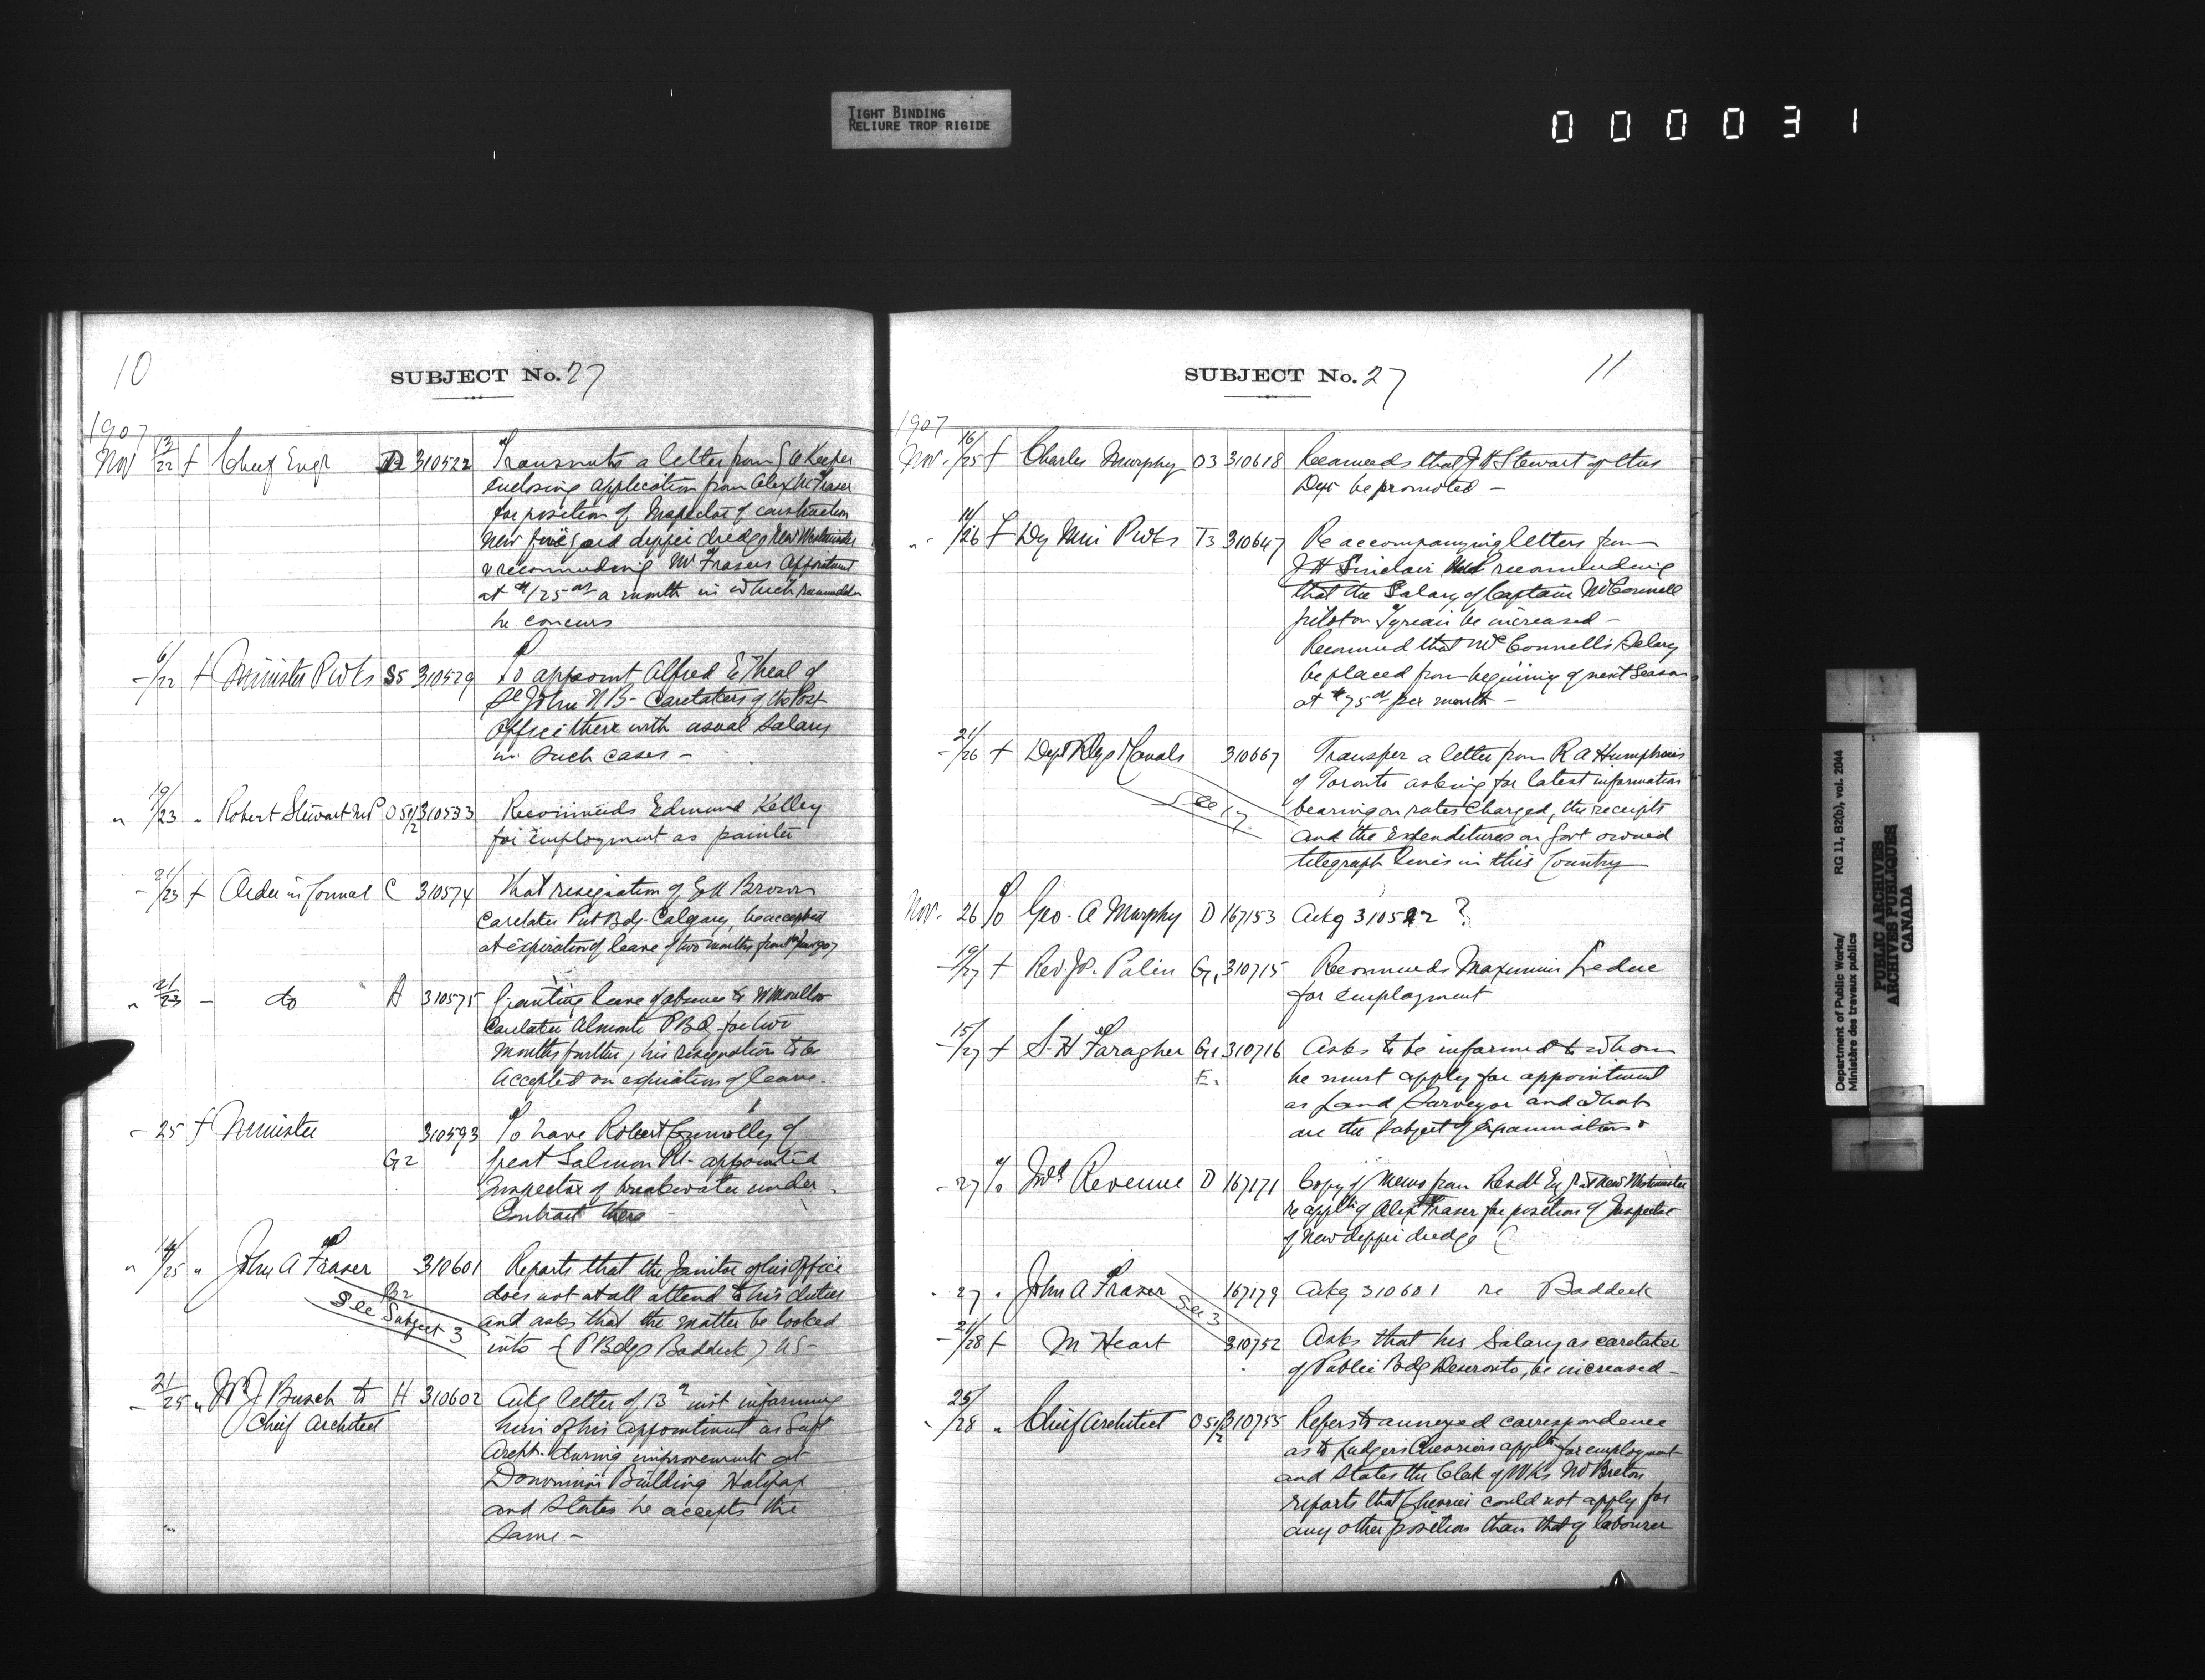 TIGHT BINDING
RELIURE TROP RIGIDE
000031
10
SUBJECT No. 27
1907
Nov 13/22 f Chief Engr D 310522 Transmits a letter from G A Keefer
enclosing application from Alex M Fraser
for position of Inspector of construction
New dipper dredge New Westminster
& recommending Mr Frasers Appointment
at $125 00 a month in which
he concurs
- 6/22 f Minister P Wks S5 310529 To appoint Alfred E Theal of
St John N B - Caretaker of the Post
Office there with usual salary
in such cases -
" 19/23 " Robert Stewart MP O 5 1/2 310533 Recommends Edmund Kelley
for employment as painter
- 21/23 f Order in Counal C 310574 That resignation of Brown
Caretaker Put Bdg. Calgary, be accepted
at expiration of leave of two months from
" 21/23 - do A 310575 Granting leave of absence to W Moulton
Caretaker Almonte P B d for two
months further, his resignation to be
Accepted on expiration of leave.
- 25 f Minister 310593 To have Robert Connolley of
G2 Great Salmon Rr - appointed
Inspector of breakwater under
Contract there
" 14/25 " John A Fraser 310601 Reports that the Janitor of his Office
B2 does not at all attend to his duties
See Subject 3 and asks that the matter be looked
into - (P Bdgs Baddeck) NS -
- 21/25 " W J Busch to H 310602 Ackg letter of 13th inst informing
Chief Architect him of his appointment as Supt
Archt. during improvements at
Dominion Building Halifax
and states he accepts the
Same -
SUBJECT No. 27
11
1907
Nov. 16/25 f Charles Murphy O3 310618 Recommeds that J H Stewart of this
Dept be promoted -
" 11/26 f Dy Min P Wks T3 310647 Re accompanying letters from
J H Sinclair recommending
that the Salary of Captain McConnell
pilot on Tyrian be increased -
Recommend that McConnell's Salary
be placed from beginning of next Season
at $75 00 per month -
- 21/26 f Dept Rlys & Canals 310667 Transfer a letter from R A Humphries
of Toronto asking for latest information
See 17. bearing on rates charged, the receipts
and the Expenditures on Govt owned
telegraph lines in this Country
Nov. 26 To Geo. A Murphy D 167153 Ackg 310522 ?
- 19/27 f Rev. Jos. Palin G1 310715 Recommends Maximin Leduc
for employment
- 15/27 f S. H Faragher G1 310716 Asks to be informed to whom
E. he must apply for appointment
as Land Surveyor and what
are the Subject of Examinations.
- 27 To Inld Revenue D 167171 Copy of Memo from Resdt Engr at New Westminster
re applt of Alex Fraser for position of Inspector
of New dipper dredge
" 27 " John A Fraser 167179 Ackg 310601 re Baddeck
See 3
- 21/28 f M Heart 310752 Asks that his Salary as caretaker
of Public Bdg Deseronto, be increased -
" 25/28 " Chief Architect O 5 1/2 310755 Refers to annexed correspondence
as to Ludger Cherriers applt for employment
and states the Clerk of Wks Mr Breton
reports that Cherrier could not apply for
any other position than that of labourer
Department of Public Works/
Ministère des travaux publics
RG 11, B2(b), vol. 2044
PUBLIC ARCHIVES
ARCHIVES PUBLIQUES
CANADA